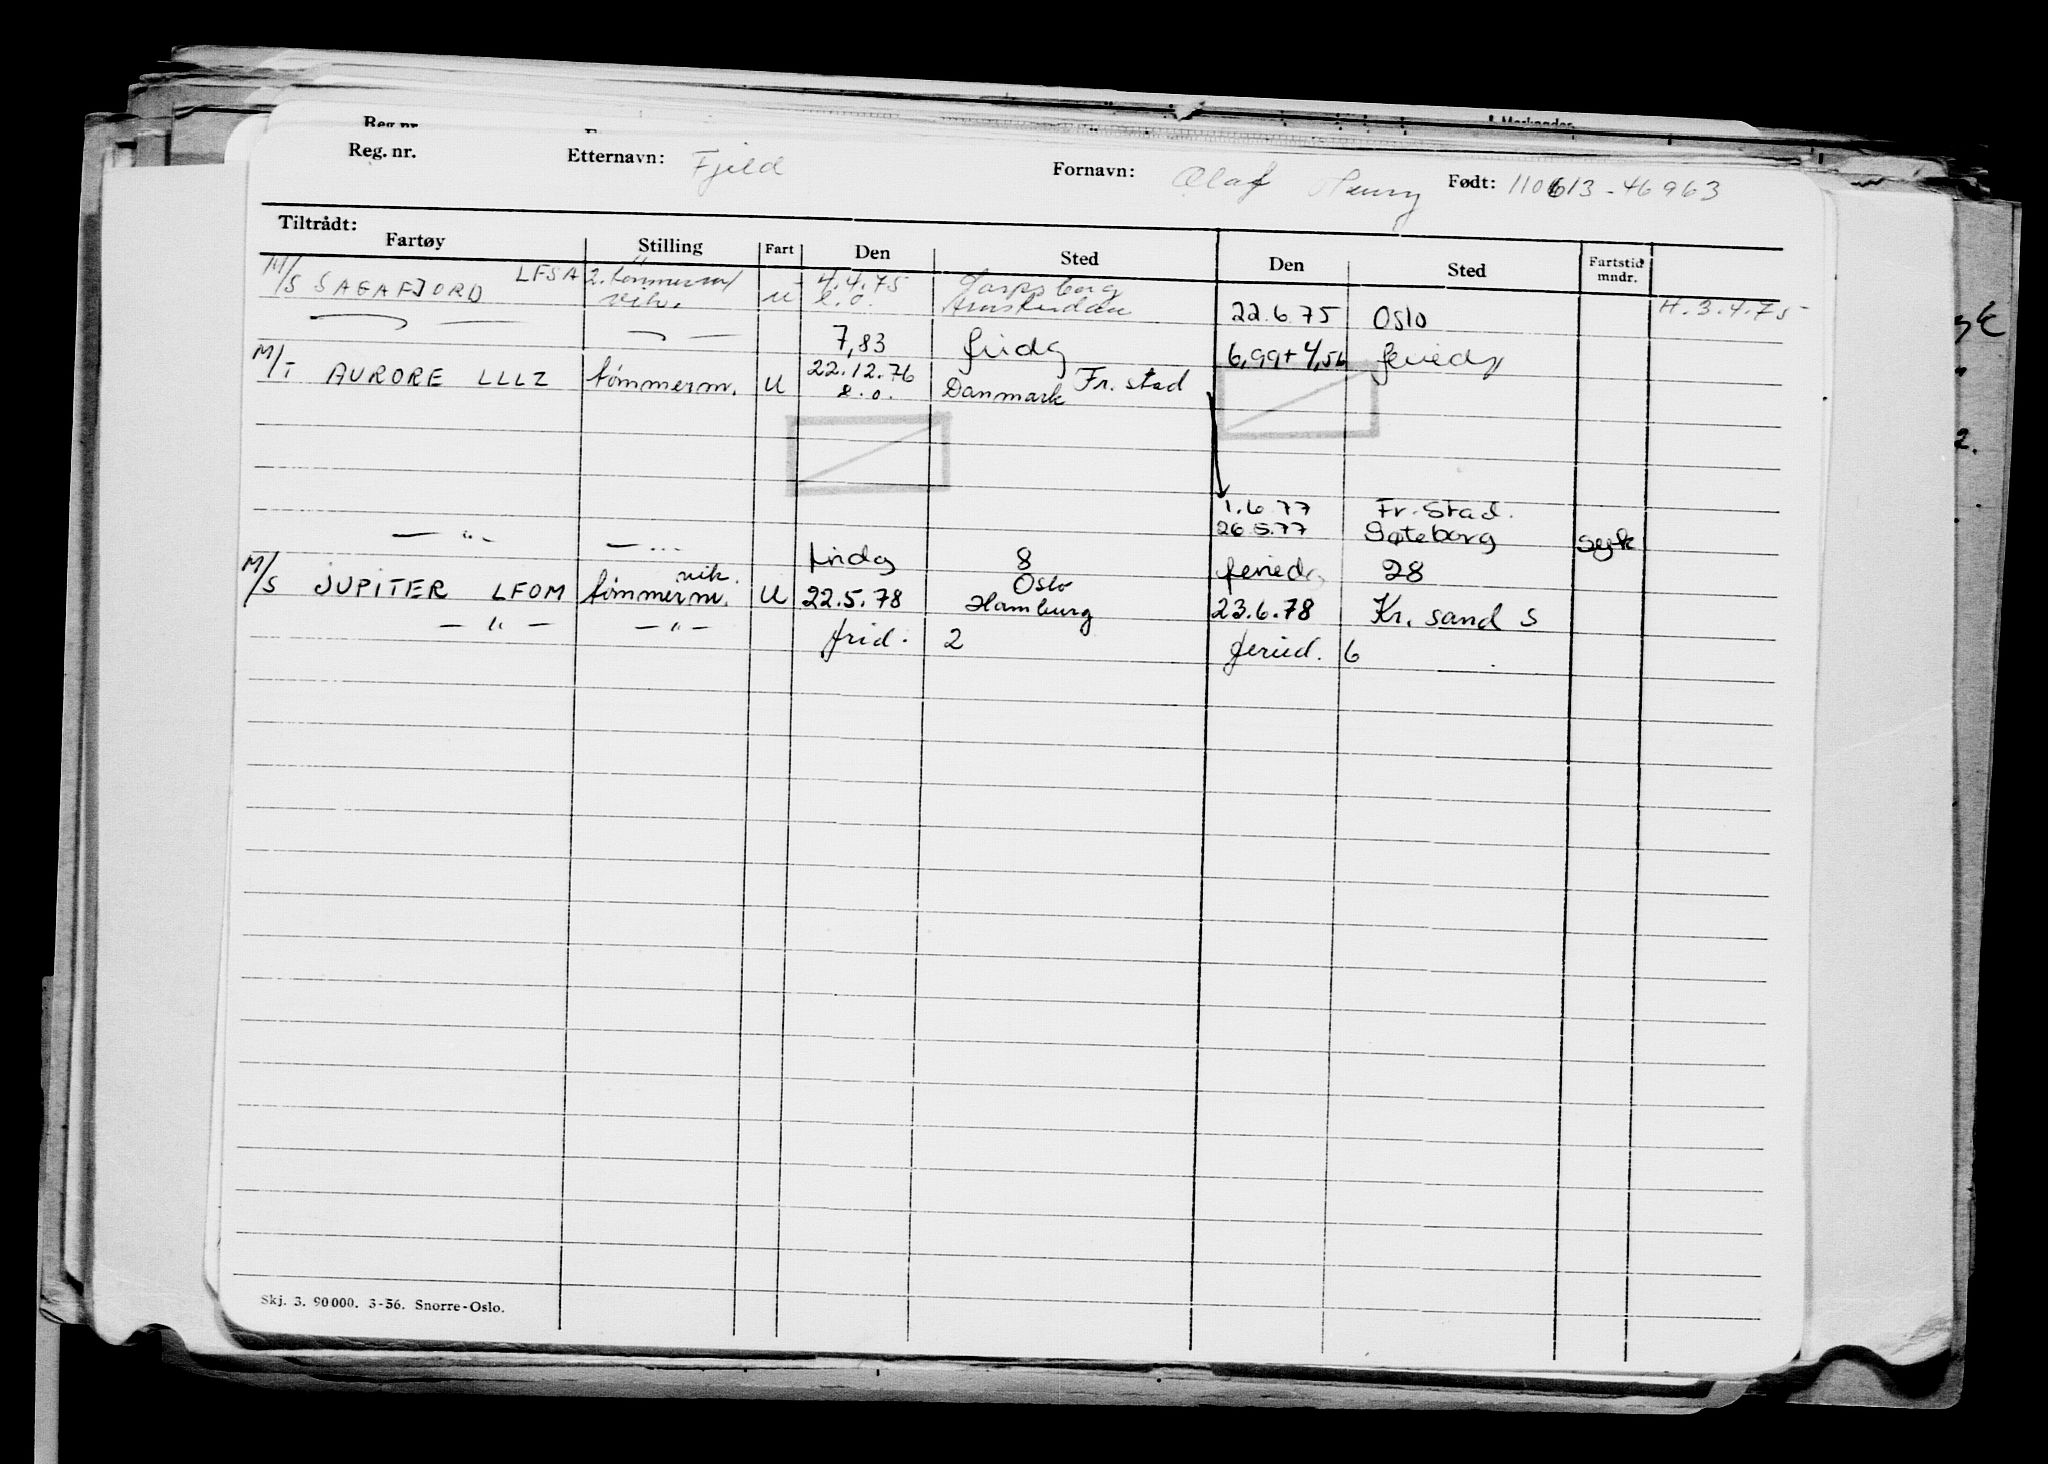 Reg. nr.
Reg. nr. Etternavn: Fjeld Fornavn: Olaf Henry Født: 110613-46963
Tiltrådt:
Fartøy Stilling Fart Den Sted Den Sted Fartstid mndr.
M/S SAGAFJORD LFSA 2. tømmerm/ vik. u 4.4.75 s.o. Sarpsborg Amsterdam 22.6.75 Oslo H. 3.4.75
7,83 frida 6,99+4,56 ferieda
M/T AURORE LLLZ tømmerm. U 22.12.76 s.o. Danmark Fr. stad
1.6.77 Fr. Stad.
— " — — " — 26.5.77 Gøteborg syk
frida 8 ferieda 28
M/S JUPITER LFOM tømmerm. vik. U 22.5.78 Oslo Hamburg 23.6.78 Kr. sand S
— " — — " — frid. 2 feried. 6
Skj. 3. 90000. 3-56. Snorre-Oslo.